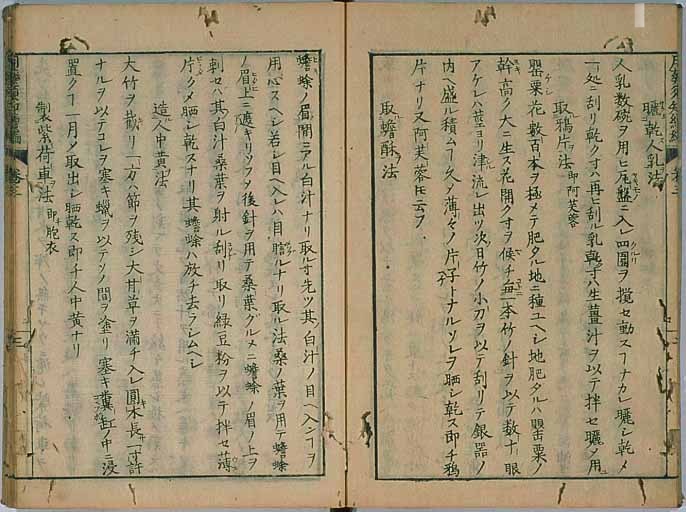 曬乾人乳法
人乳数碗ヲ用ヒ瓦盤ニ入レ四圍ヲ攪セ動スヿナカレ曬シ乾メ
一処ニ刮リ乾クオハ再ヒ刮ル乳乾オハ生薑汁ヲ以テ拌セ曬メ用
取鴉片法 即阿芙蓉
罌粟花数百本ヲ極メテ肥タル地ニ種ユヘシ地肥タルハ罌粟ノ
幹高ク大ニ生ス花開クオヲ候チ毎一本竹ノ針ヲ以テ数十眼
アケレハ莖ヨリ津流レ出ツ次日竹ノ小刀ヲ以テ刮リテ銀器ノ
内ニ盛ル積ムヿ久メ薄キノ片子トナルソレヲ晒シ乾ス即チ鴉
片ナリ又阿芙蓉氏云フ
取蟾酥法
蟾蜍ノ眉間ニアル白汁ナリ取ルオ先ツ其白汁ノ目ヘ入ンヿヲ
用心スヘシ若シ目ヘ入レハ目瞎ルナリ取ル法桑ノ葉ヲ用テ蟾蜍
ノ眉上ニ遮キリフタ後針ヲ用テ桑葉グルメニ蟾蜍ノ眉ノ上ヲ
刺セハ其白汁桑葉ヲ射ル刮リ取リ緑豆粉ヲ以テ拌セ薄
片クメ晒シ乾スナリ其蟾蜍ハ放チ去ラシムヘシ
造人中黄法
大竹ヲ截リ一方ハ節ヲ残シ大甘草ヲ満チ入レ圓木長一寸許
ナルヲ以テコレヲ塞キ蠟ヲ以テソノ間ヲ塗リ塞キ糞缸ノ中ニ浸
置クヿ一月メ取出シ晒乾ス即チ人中黄ナリ
製紫荷車法 即胞衣